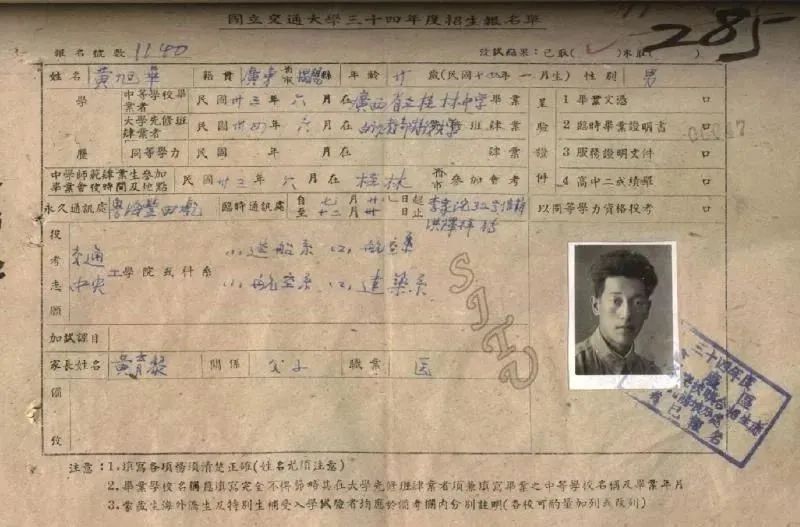 國立交通大學三十四年度招生報名單
285
報名號數 1140 考試結果：已取( ✓ )未取( )
姓名 黃旭華 籍貫 廣東省市揭陽縣 年齡 廿 歲(民國十五年一月生) 性別 男
學歷
中等學校畢業者 民國卅三年六月在廣西省立桂林中學畢業
大學先修班肄業者 民國卅四年六月在 班肄業
同等學力 民國 年 月在 肄業
呈驗證件
1 畢業文憑 口
2 臨時畢業證明書 口
3 服務證明文件 口
4 高中二成績單 口
中學師範肄業生參加畢業會考時間及地點 民國卅三年六月在 桂林 省市參加會考
永久通訊處 粵海豐田乾 臨時通訊處 自七月廿八日起至十二月卅日止
以同等學力資格投考 口
投考志願
交通 工學院或科系 (1) 造船系 (2) 航空系
中央 (1) 航空系 (2) 建築系
SJTU
加試課目
家長姓名 黃育黎 關係 父子 職業 医
備攷
三十四年度
注意：1.填寫各項務須清楚正確(姓名尤須注意)
2.畢業學校名稱應填寫完全不得節略其在大學先修班肄業者須兼填寫畢業之中等學校名稱及畢業年月
3.蒙藏生海外僑生及特別生補受入學試驗者均應於備考欄內分別註明(各校可酌量加列或改列)